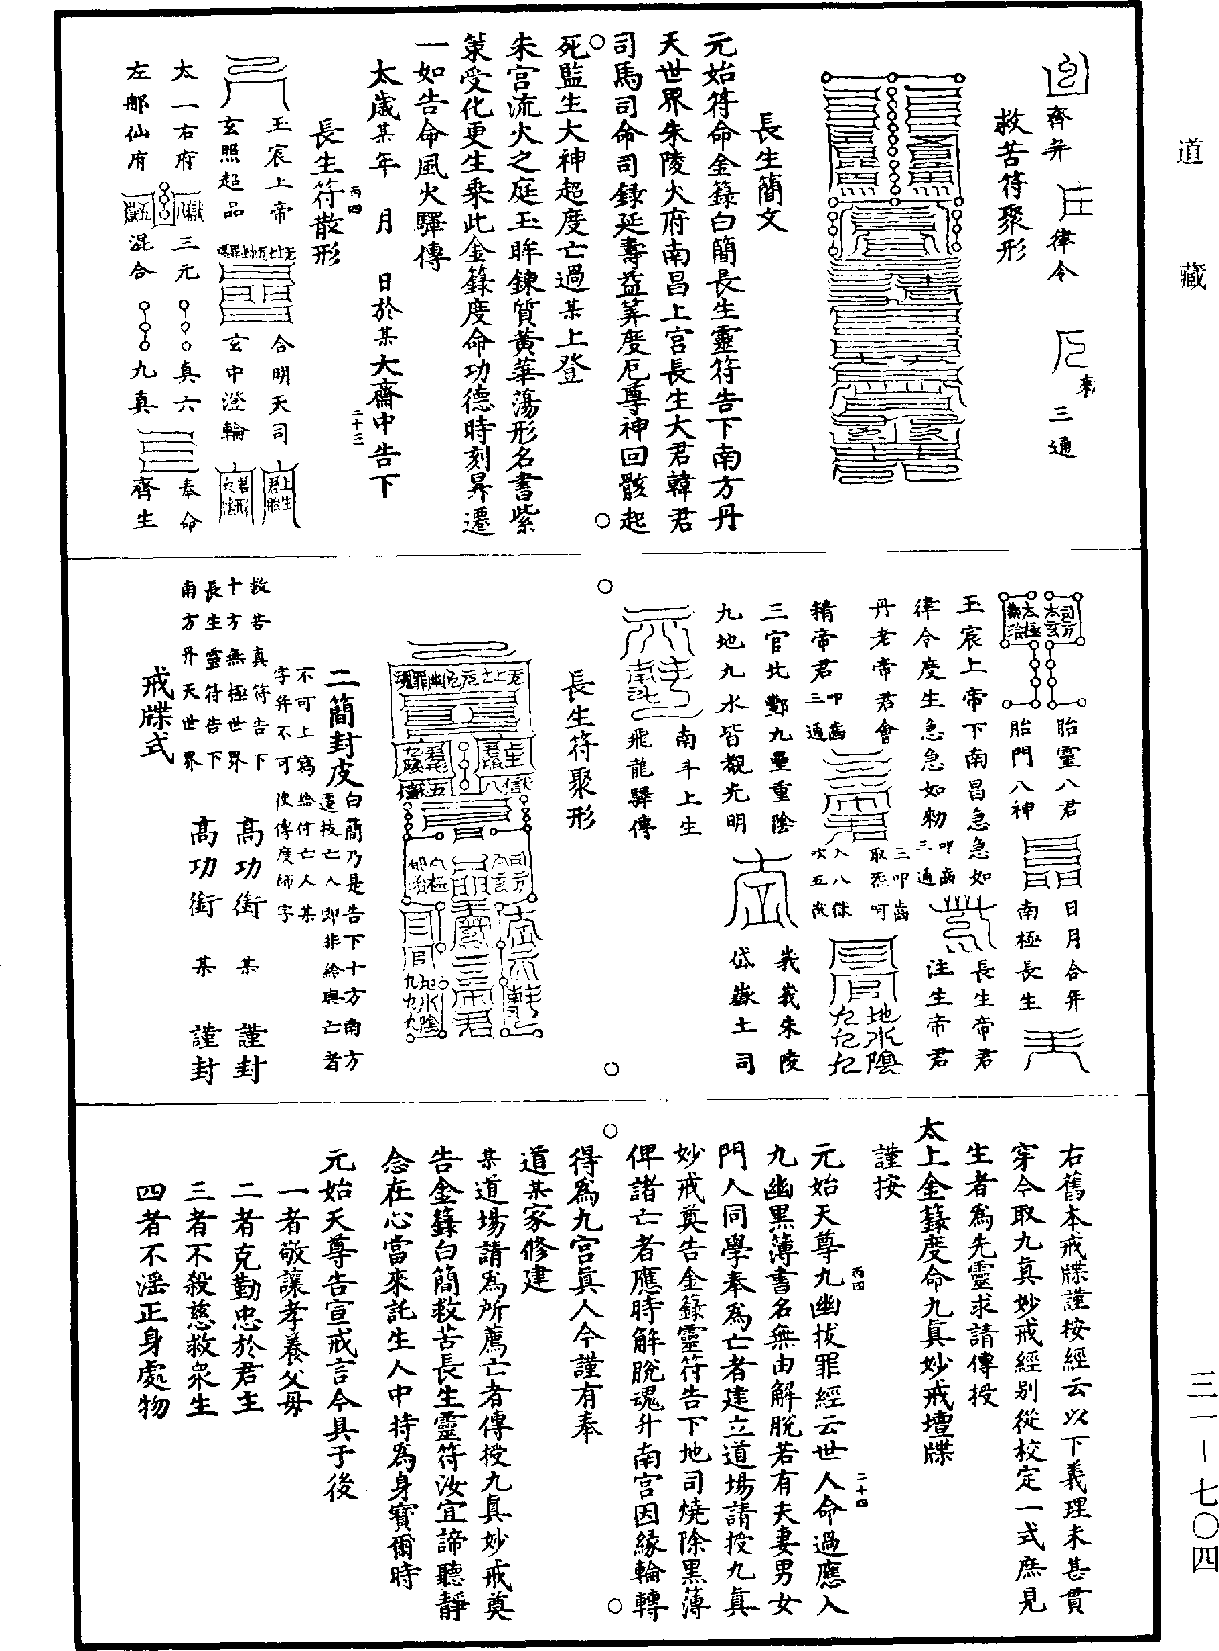 道藏
三一—七〇四
齊并 律令 三通
救苦符聚形
長生簡文
元始符命金籙白簡長生靈符告下南方丹
天世界朱陵火府南昌上宮長生大君韓君
司馬司命司錄延壽益筭度厄尊神回骸起
死監生大神超度亡過某上登
朱宮流火之庭玉眸鍊質黃華蕩形名書紫
策受化更生乘此金籙度命功德時刻昇遷
一如告命風火驛傳
太歲某年 月 日於某大齋中告下
長生符散形
丙四
二十三
玉宸上帝 合明天司
玄照超品 玄中澄輪
太一右府 三元 真六 奉命
左郍仙府 混合 九真 齊生
胎靈八君 日月合年
胎門八神 南極長生
玉宸上帝下南昌急急如 長生帝君
律令度生急急如勑 叩齒三通 注生帝君
丹老帝君會 三叩齒取炁呵
精帝君 叩齒三通
三官北酆九壘重陰 峩峩朱陵
九地九水皆覩光明 岱嶽土司
南斗上生
飛龍驛傳
長生符聚形
二簡封皮
白簡乃是告下十方南方
還拔亡人即非給與亡者
不可上寫給付亡人某
字并不可使傳度師字
救苦真符告下
十方無極世界 高功銜 某 謹封
長生靈符告下
南方丹天世界 高功銜 某 謹封
戒牒式
右舊本戒牒謹按經云以下義理未甚貫
穿今取九真妙戒經別從校定一式庶見
生者為先靈求請傳授
太上金籙度命九真妙戒壇牒
謹按
元始天尊九幽拔罪經云世人命過應入
丙四
二十四
九幽黑薄書名無由解脫若有夫妻男女
門人同學奉為亡者建立道場請授九真
妙戒奠告金籙靈符告下地司燒除黑薄
俾諸亡者應時解脫魂升南宮因緣輪轉
得為九宮真人今謹有奉
道某家修建
某道場請為所薦亡者傳授九真妙戒奠
告金籙白簡救苦長生靈符汝宜諦聽靜
念在心當來託生人中持為身寶爾時
元始天尊告宣戒言今具于後
一者敬讓孝養父母
二者克勤忠於君主
三者不殺慈救衆生
四者不淫正身處物